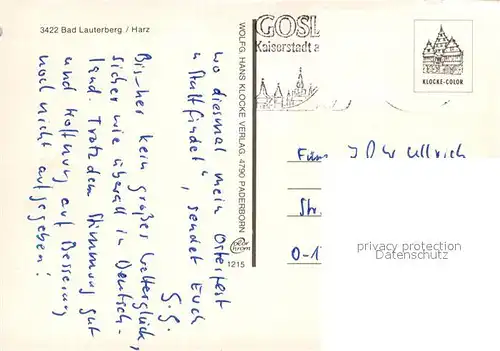 3422 Bad Lauterberg / Harz
GOSL
Kaiserstadt a
KLOCKE-COLOR
WOLFG. HANS KLOCKE VERLAG, 4790 PADERBORN
1215
wo diesmal mein Osterfest
"stattfindet", sendet Euch
G.G.
Bisher kein großes Wetterglück,
sicher wie überall in Deutsch-
land. Trotzdem Stimmung gut
und Hoffnung auf Besserung
noch nicht aufgegeben!
Fam. Ullrich
Str.
O-1
privacy protection
Datenschutz